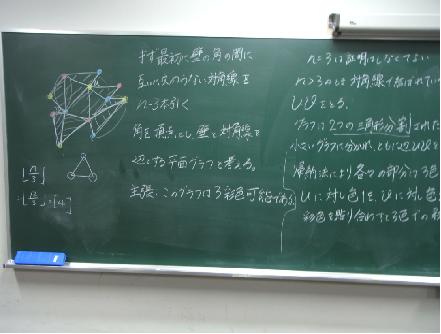 まず最初に壁の角の間に
互いに交わらない対角線を
n-3本引く
角を頂点とし、壁と対角線を
辺とする平面グラフを考える。
主張:このグラフは3彩色可能である。
⌊n/3⌋
⌊12/3⌋=[4]
n=3は証明しなくてよい
n>3のとき対角線で結ばれてい
uvをとる。
グラフは2つの三角形分割された
小さいグラフに分かれ、ともに辺uvを
帰納法により各々の部分は3色
uに対し色1を、vに対し色
彩色を貼り合わすと3色での彩